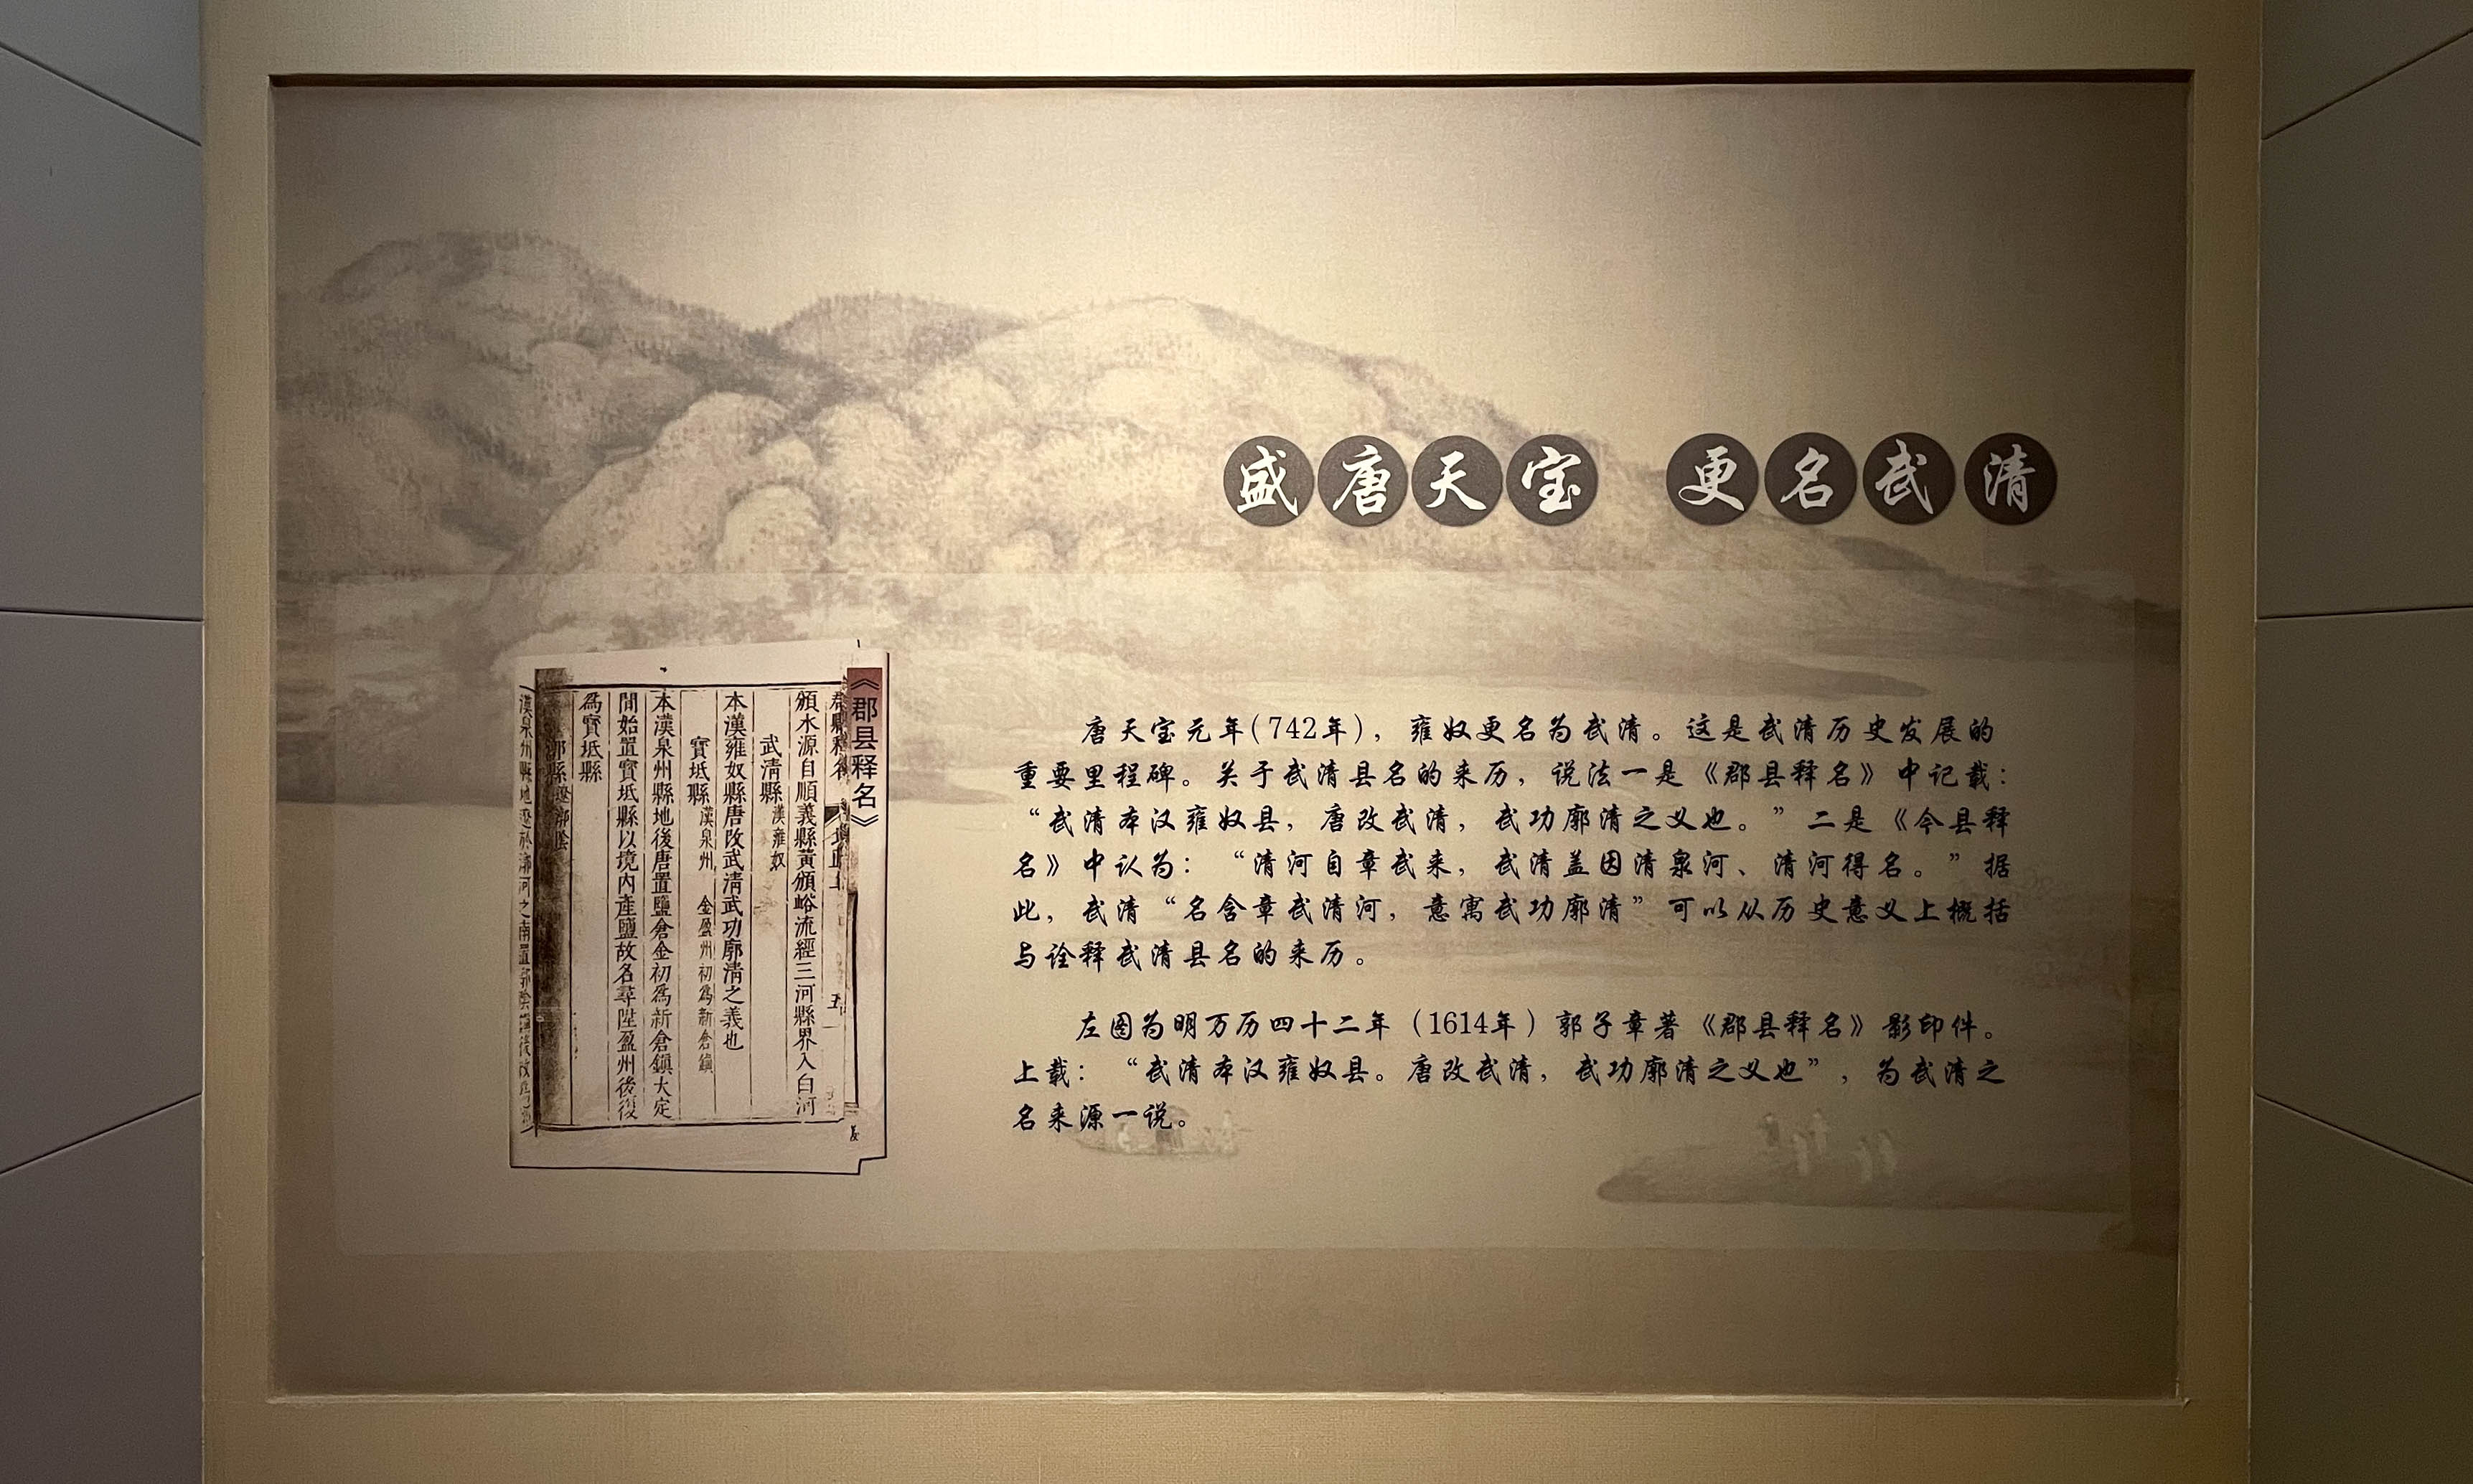 盛唐天宝 更名武清
唐天宝元年(742年)，雍奴更名为武清。这是武清历史发展的
重要里程碑。关于武清县名的来历，说法一是《郡县释名》中记载：
“武清本汉雍奴县，唐改武清，武功廓清之义也。”二是《今县释
名》中认为：“清河自章武来，武清盖因清泉河、清河得名。”据
此，武清“名含章武清河，意寓武功廓清”可以从历史意义上概括
与诠释武清县名的来历。
左图为明万历四十二年（1614年）郭子章著《郡县释名》影印件。
上载：“武清本汉雍奴县。唐改武清，武功廓清之义也”，为武清之
名来源一说。
《郡县释名》
五
頒水源自順義縣黃頒峪流經三河縣界入白河
武清縣漢雍奴
本漢雍奴縣唐改武清武功廓清之義也
寶坻縣漢泉州 金盈州初為新倉鎮
本漢泉州縣地後唐置鹽倉金初為新倉鎮大定
間始置寶坻縣以境內產鹽故名尋陞盈州後復
為寶坻縣